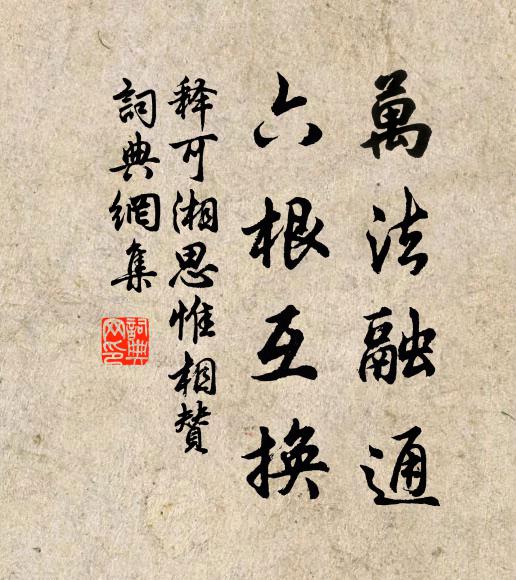 萬法融通
六根互換
释可湘思惟相賛
詞典網集
詞典網印